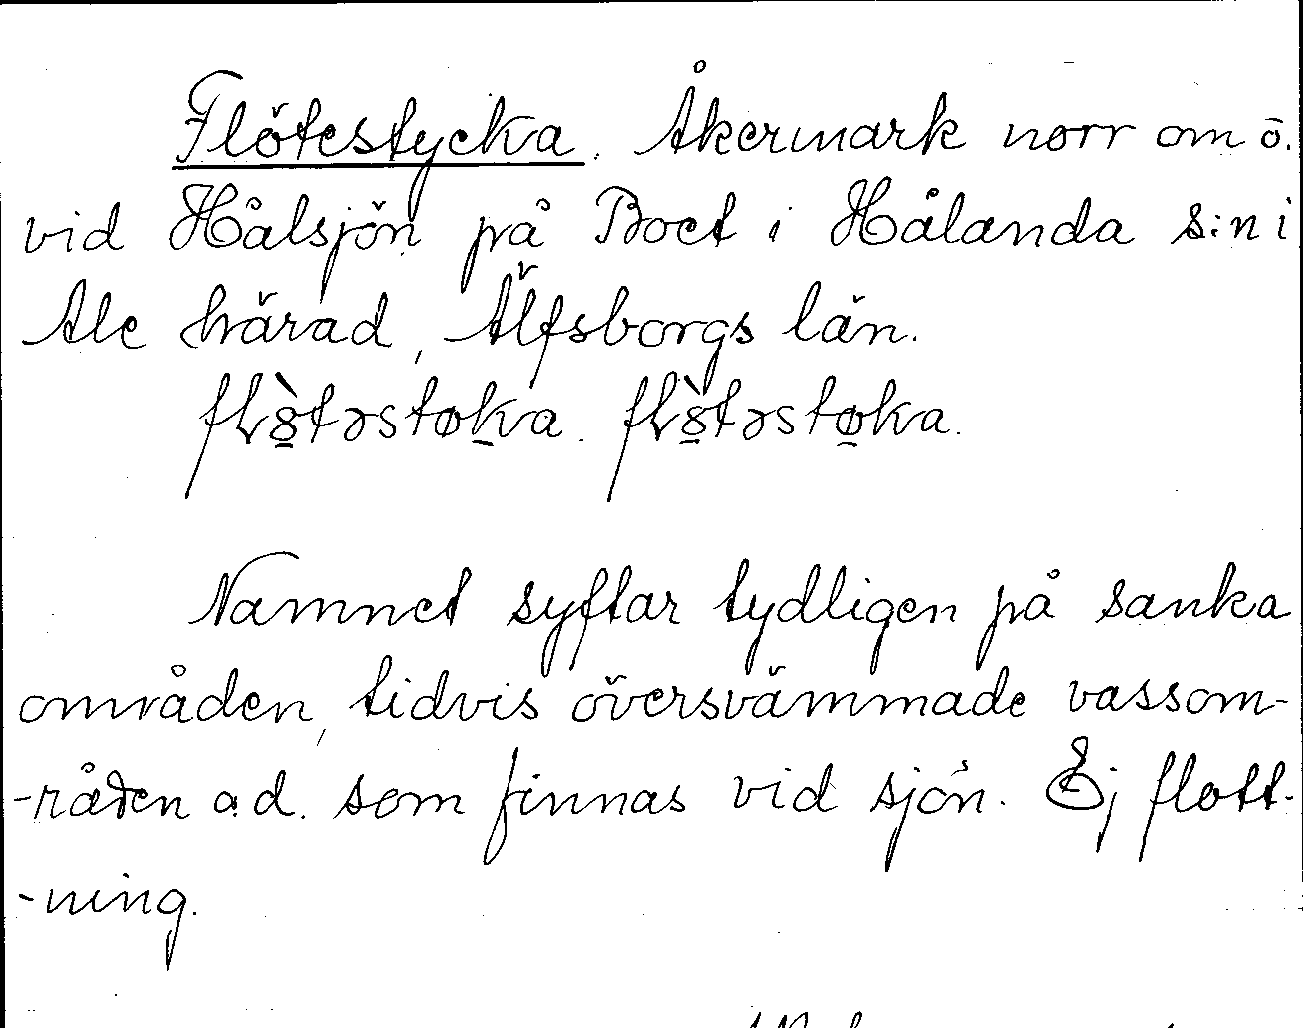 Flötestycka. Åkermark norr om ö.
vid Hålsjön på Boet i Hålanda s:n i
Ale härad, Älfsborgs län.
flö̀təstøka. flö̀təstøka.
Namnet syftar tydligen på sanka
områden, tidvis översvämmade vassom-
-råden o.d. som finnas vid sjön. Ej flott-
-ning.